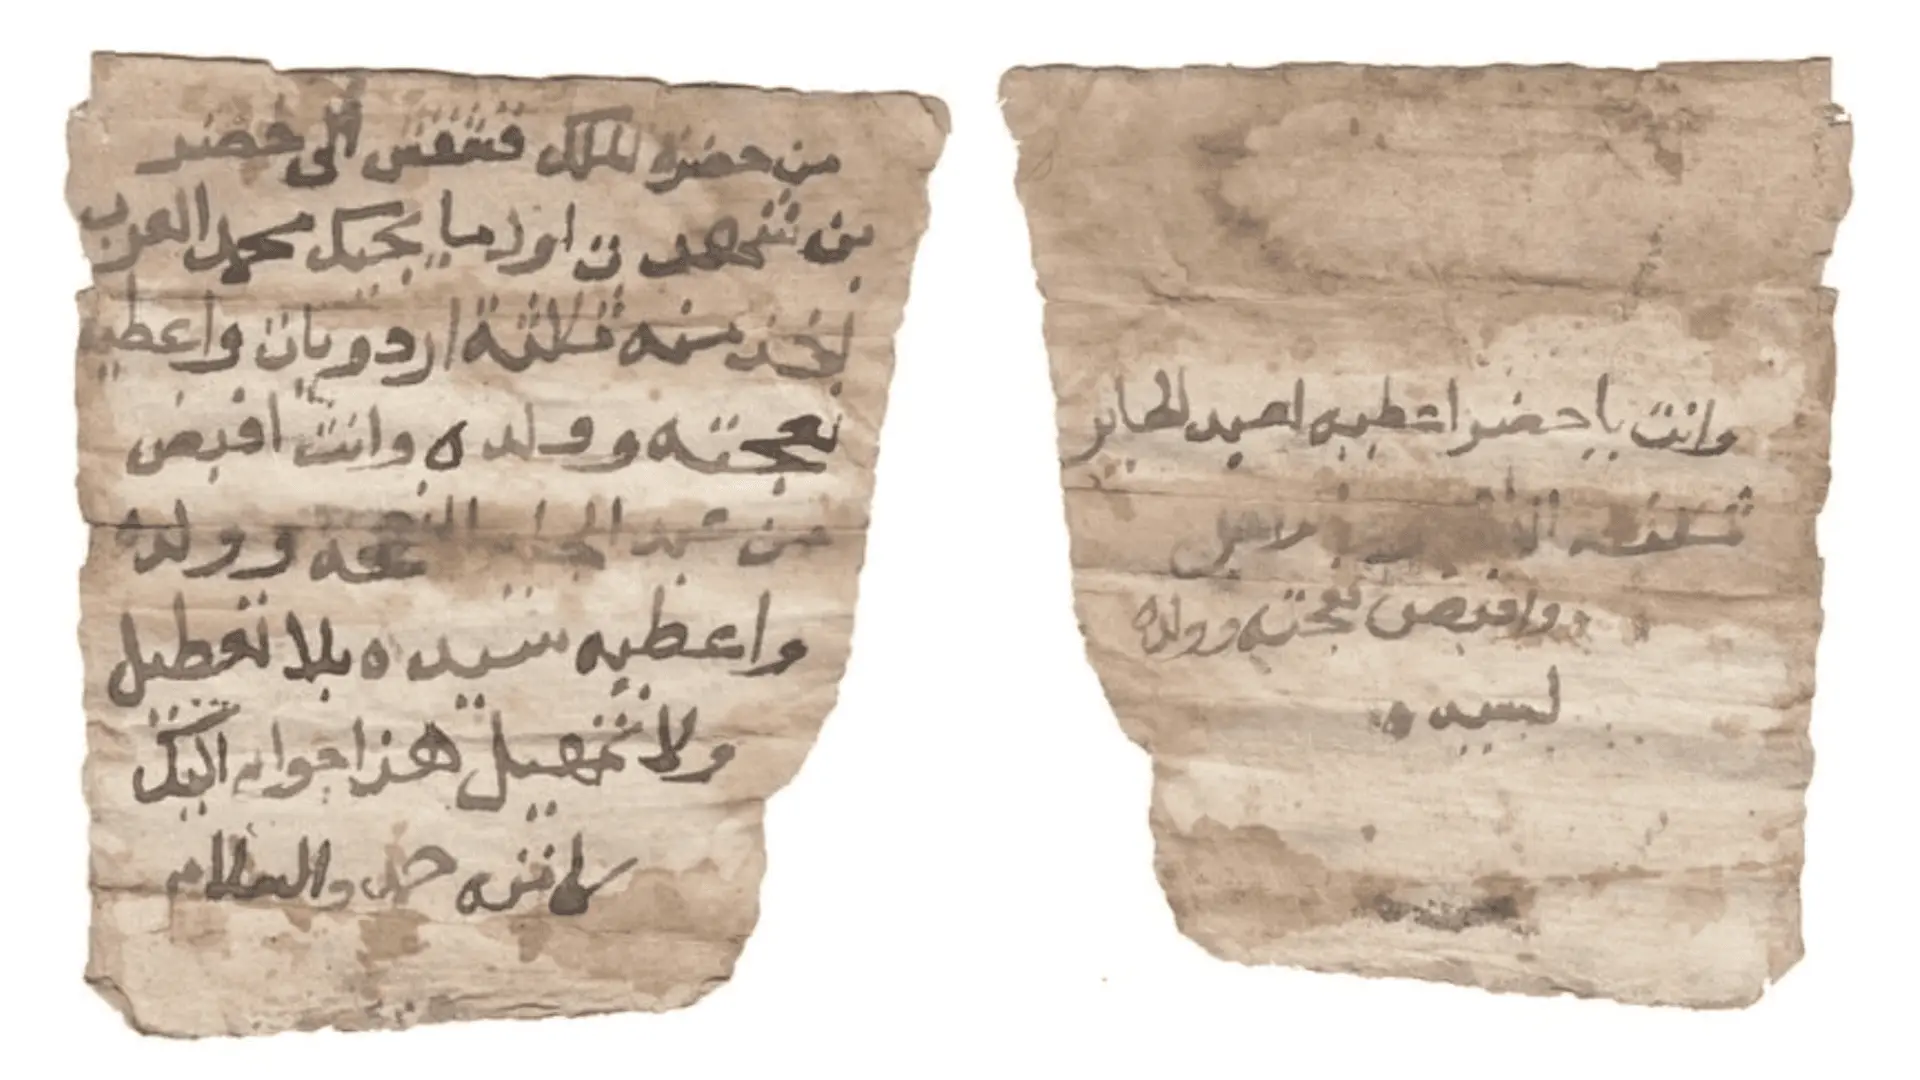 من حضره الملك قشقش الى خضر
بن شهدت اول ما يجيك محمد العرب
تخذ منه ثلاثة اردويات واعطيه
نعجته وولده وانت اقبض
من عبد الجابر النعجه وولده
واعطيه سيده بلا تعطيل
ولا تمهيل هذا جوابي اليك
لا غير والسلام
وانت يا خضر اعطيه لعبد الجابر
ثلثه
واقبض نعجته وولده
لسيده